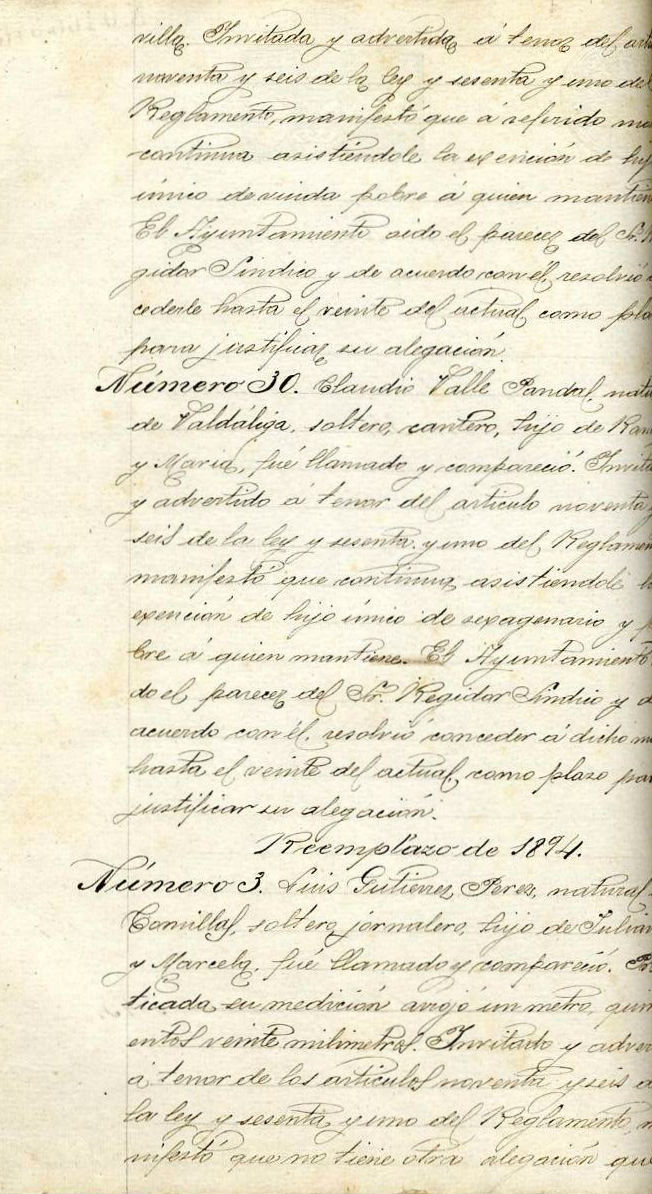 villa. Invitada y advertida, á tenor del art
noventa y seis de la ley y sesenta y uno del
Reglamento, manifestó que á referido mo
continua asistiéndole la exención de hij
único de viuda pobre á quien mantien
El Ayuntamiento oido el parecer del Sr. R
gidor Sindico y de acuerdo con él, resolvió
cederle hasta el veinte del actual, como pla
para justificar su alegación.
Número 30. Claudio Valle Pandal, natu
de Valdáliga, soltero, cantero, hijo de Ram
y Maria, fué llamado y compareció. Invita
y advertido á tenor del articulo noventa y
seis de la ley y sesenta y uno del Reglamen
manifestó que continua asistiendole l
exención de hijo único de sexagenario y p
bre á quien mantiene. El Ayuntamiento
do el parecer del Sr. Regidor Sindico y d
acuerdo con él, resolvió conceder á dicho m
hasta el veinte del actual, como plaso par
justificar su alegación.
Reemplazo de 1894.
Número 3. Luis Gutierrez Perez, natural
Comillas, soltero, jornalero, hijo de Julian
y Marcela, fué llamado y compareció. Pr
ticada su medición arrojó un metro, quin
entos veinte milimetros. Invitado y adver
á tenor de los articulos noventa y seis d
la ley y sesenta y uno del Reglamento, m
nifestó que no tiene otra alegación qu